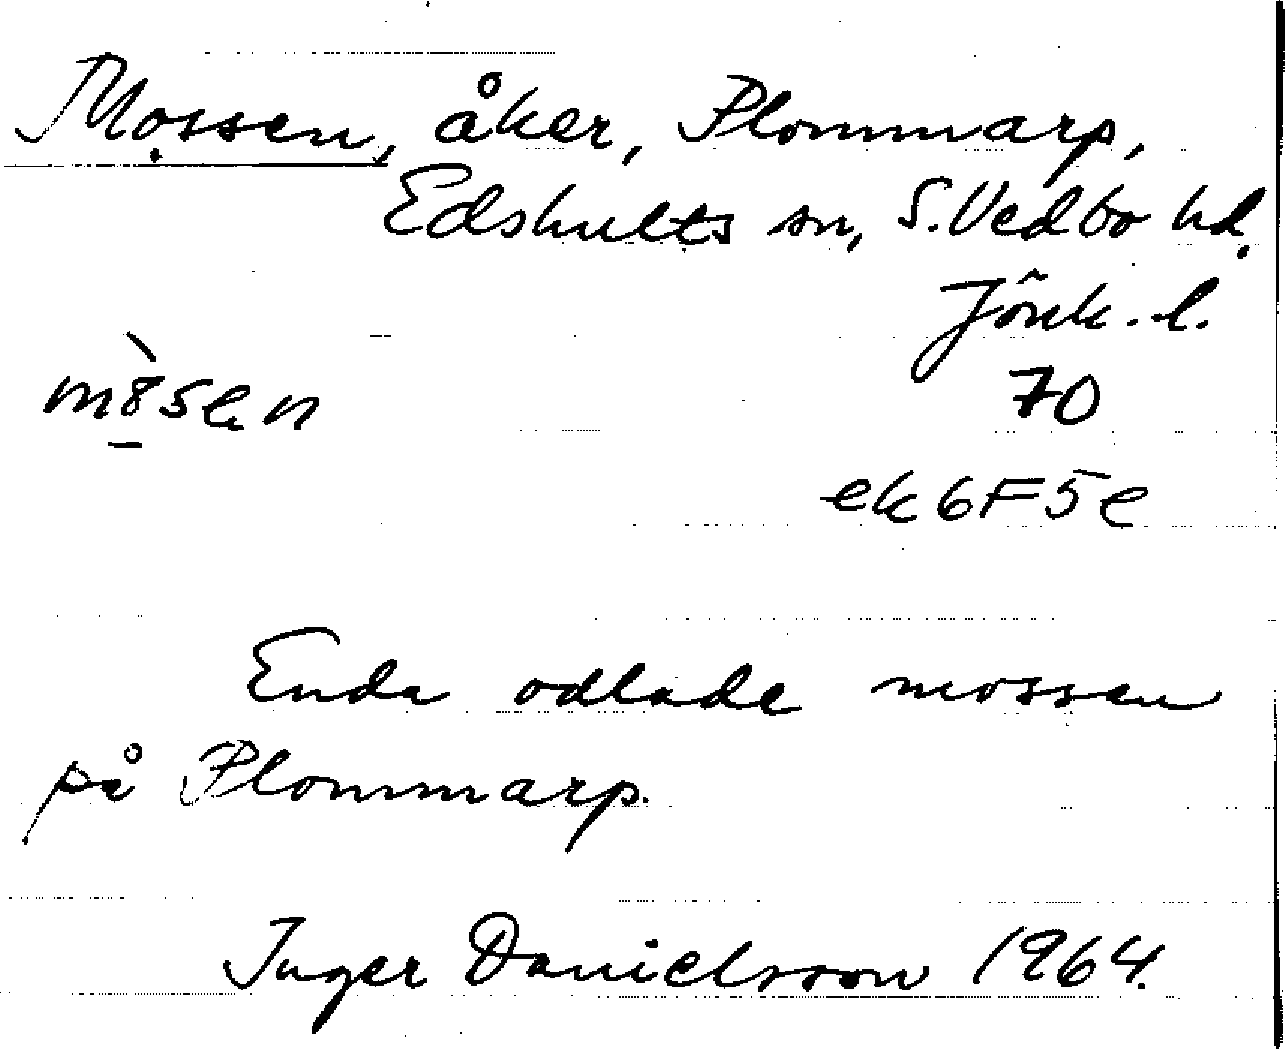 Mossen, åker, Plommarp,
Edshults sn, S. Vedbo hd.
Jönk. l.
m8̀sen
70
ek 6F5e
Enda odlade mossen
på Plommarp.
Inger Danielsson 1964.